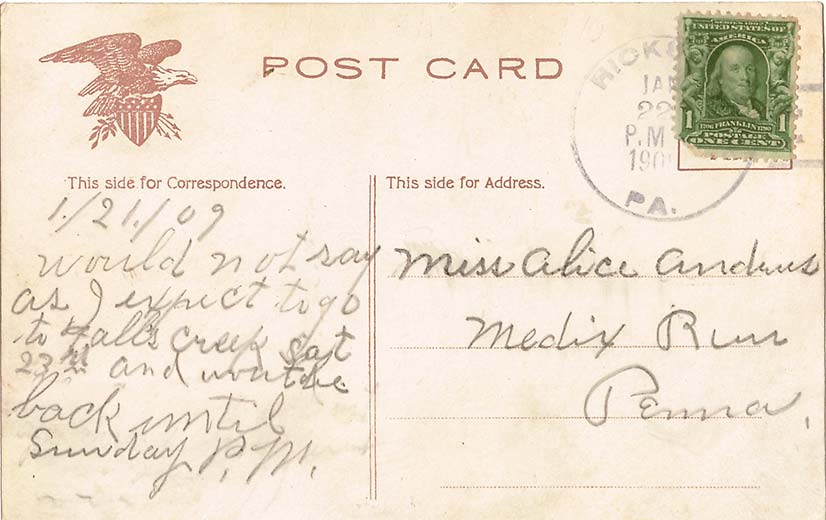 POST CARD
This side for Correspondence.
This side for Address.
1/21/09
would not say
as I expect to go
to Falls Creek Sat
23rd and wont be
back until
Sunday P.M.
Miss Alice Andrus
Medix Run
Penna.
JAN
22
P.M
190
PA.
SERIES 1902
UNITED STATES OF
AMERICA
1 1
1706 FRANKLIN 1790
POSTAGE
ONE CENT